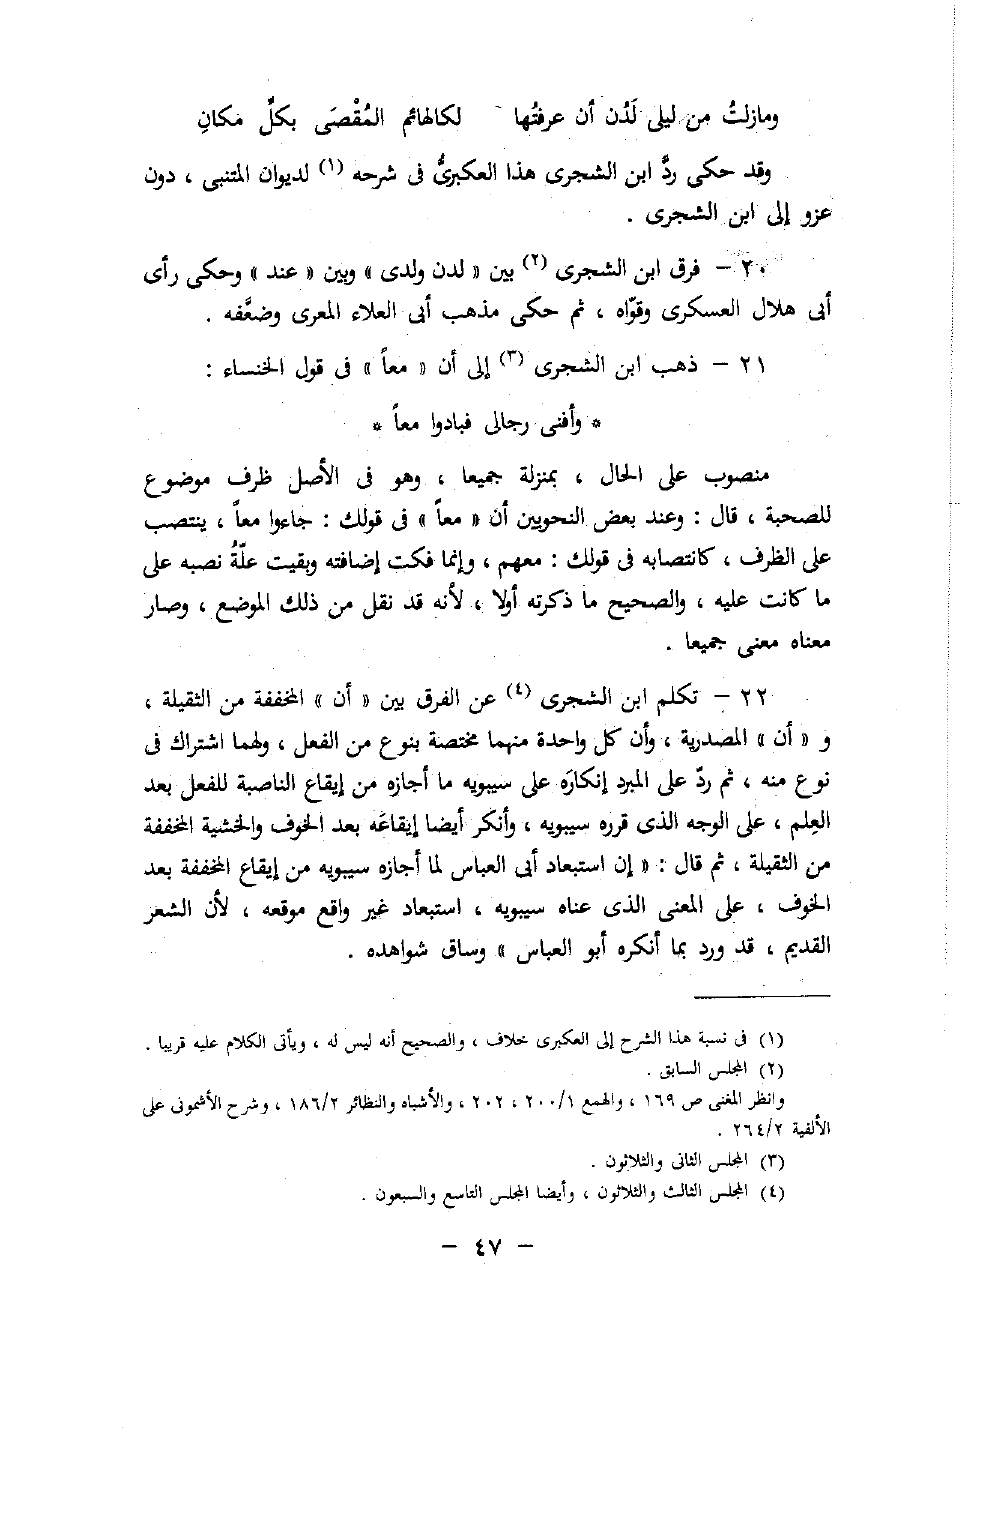 ومازلتُ من ليلى لَدُن أن عرفتُها لكالهائم المُقْصَى بكلِّ مَكانِ
وقد حكى ردَّ ابن الشجرى هذا العكبرىُّ فى شرحه (١) لديوان المتنبى ، دون
عزو إلى ابن الشجرى .
٢٠ – فرق ابن الشجرى (٢) بين « لدن ولدى » وبين « عند » وحكى رأى
أبى هلال العسكرى وقوّاه ، ثم حكى مذهب أبى العلاء المعرى وضعَّفه .
٢١ – ذهب ابن الشجرى (٣) إلى أن « معاً » فى قول الخنساء :
* وأفنى رجالى فبادوا معاً *
منصوب على الحال ، بمنزلة جميعا ، وهو فى الأصل ظرف موضوع
للصحبة ، قال : وعند بعض النحويين أن « معاً » فى قولك : جاءوا معاً ، ينتصب
على الظرف ، كانتصابه فى قولك : معهم ، وإنما فكت إضافته وبقيت علّةُ نصبه على
ما كانت عليه ، والصحيح ما ذكرته أولا ، لأنه قد نقل من ذلك الموضع ، وصار
معناه معنى جميعا .
٢٢ – تكلم ابن الشجرى (٤) عن الفرق بين « أن » المخففة من الثقيلة ،
و « أن » المصدرية ، وأن كل واحدة منهما مختصة بنوع من الفعل ، ولهما اشتراك فى
نوع منه ، ثم ردّ على المبرد إنكارَه على سيبويه ما أجازه من إيقاع الناصبة للفعل بعد
العِلم ، على الوجه الذى قرره سيبويه ، وأنكر أيضا إيقاعَه بعد الخوف والخشية المخففة
من الثقيلة ، ثم قال : « إن استبعاد أبى العباس لما أجازه سيبويه من إيقاع المخففة بعد
الخوف ، على المعنى الذى عناه سيبويه ، استبعاد غير واقع موقعه ، لأن الشعر
القديم ، قد ورد بما أنكره أبو العباس » وساق شواهده .
(١) فى نسبة هذا الشرح إلى العكبرى خلاف ، والصحيح أنه ليس له ، ويأتى الكلام عليه قريبا .
(٢) المجلس السابق .
وانظر المغنى ص ١٦٩ ، والهمع ٢٠٠/١ ، ٢٠٢ ، والأشباه والنظائر ١٨٦/٢ ، وشرح الأشمونى على
الألفية ٢٦٤/٢ .
(٣) المجلس الثانى والثلاثون .
(٤) المجلس الثالث والثلاثون ، وأيضا المجلس التاسع والسبعون .
– ٤٧ –